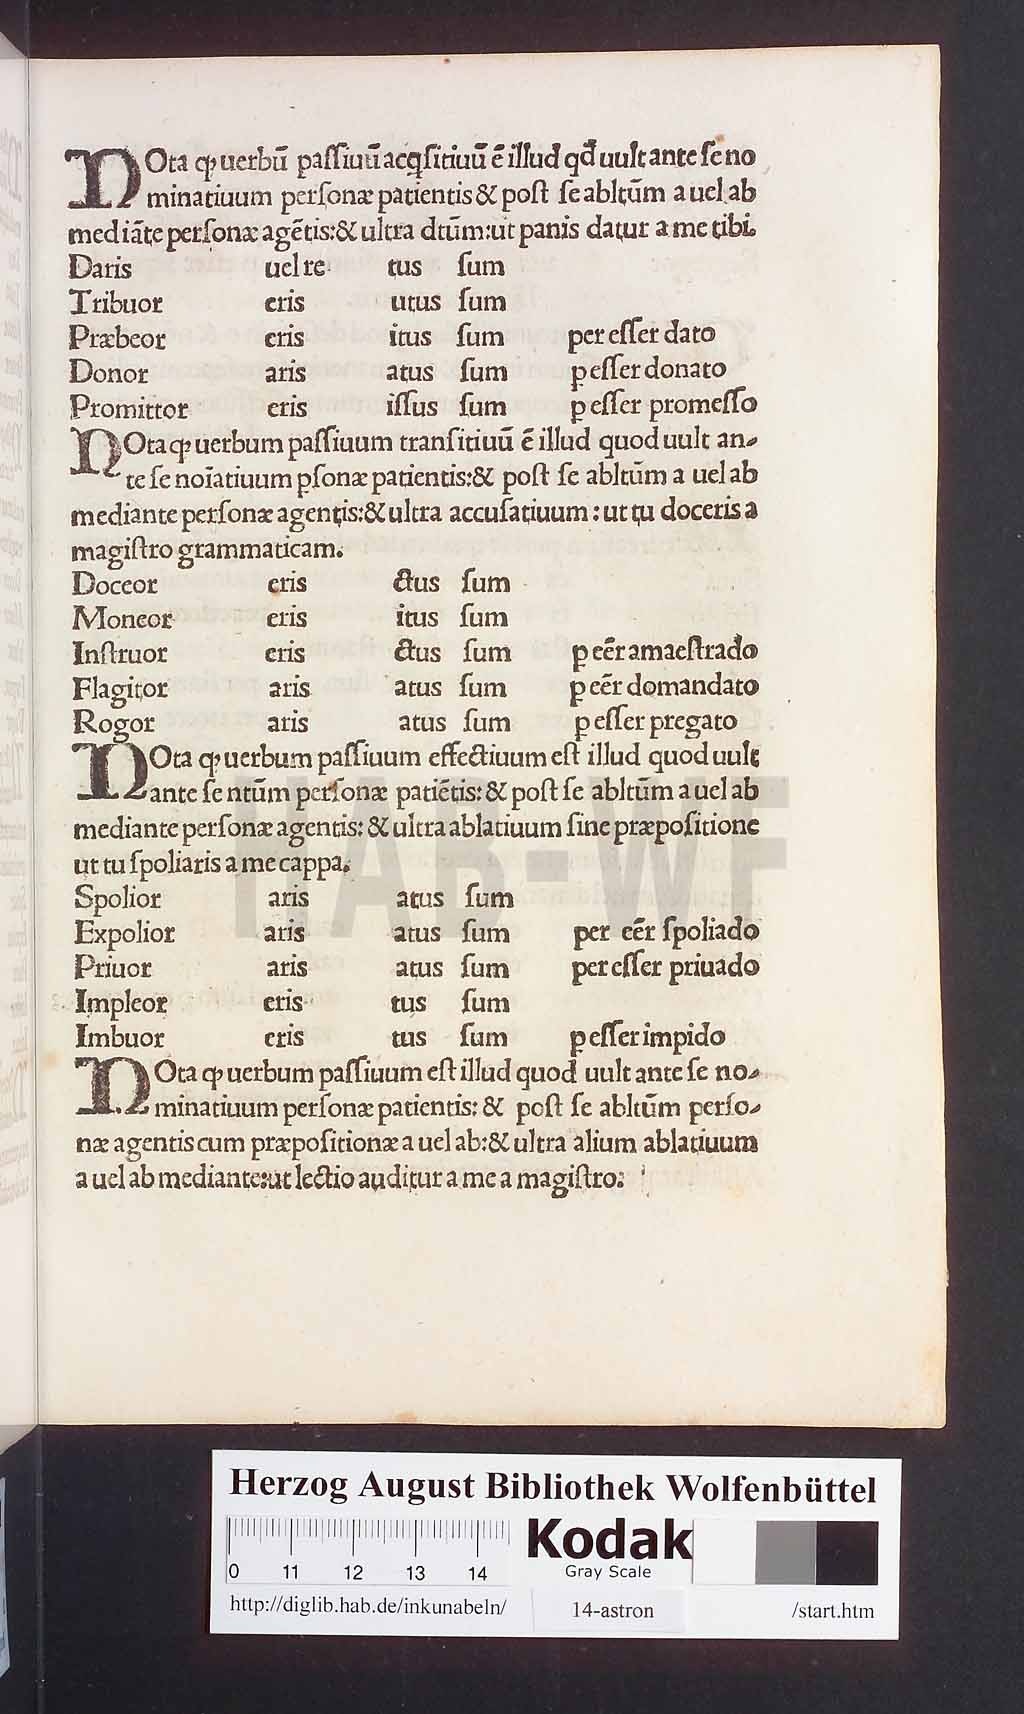 NOta ꝙ uerbū paſſiuū acqſitiuū ē illud qđ uult ante ſe no
minatiuum perſonæ patientis & poſt ſe abltūm a uel ab
mediāte perſonæ agētis:& ultra dtūm:ut panis datur a me tibi.
Daris uel re tus ſum
Tribuor eris utus ſum
Præbeor eris itus ſum per eſſer dato
Donor aris atus ſum ꝑ eſſer donato
Promittor eris iſſus ſum ꝑ eſſer promeſſo
NOta ꝙ uerbum paſſiuum tranſitiuū ē illud quod uult an⸗
te ſe noīatiuum ꝑſonæ patientis:& poſt ſe abltūm a uel ab
mediante perſonæ agentis:& ultra accuſatiuum : ut tu doceris a
magiſtro grammaticam.
Doceor eris ctus ſum
Moneor eris itus ſum
Inſtruor eris ctus ſum ꝑ eēr amaeſtrado
Flagitor aris atus ſum ꝑ eēr domandato
Rogor aris atus ſum ꝑ eſſer pregato
NOta ꝙ uerbum paſſiuum effectiuum eſt illud quod uult
ante ſe ntūm perſonæ patiētis: & poſt ſe abltūm a uel ab
mediante perſonæ agentis: & ultra ablatiuum ſine præpoſitione
ut tu ſpoliaris a me cappa.
Spolior aris atus ſum
Expolior aris atus ſum per eēr ſpoliado
Priuor aris atus ſum per eſſer priuado
Impleor eris tus ſum
Imbuor eris tus ſum ꝑ eſſer impido
NOta ꝙ uerbum paſſiuum eſt illud quod uult ante ſe no⸗
minatiuum perſonæ patientis: & poſt ſe abltūm perſo⸗
næ agentis cum præpoſitionæ a uel ab:& ultra alium ablatiuum
a uel ab mediante:ut lectio auditur a me a magiſtro.
HAB-WF
Herzog August Bibliothek Wolfenbüttel
Kodak
Gray Scale
0 11 12 13 14
http://diglib.hab.de/inkunabeln/ 14-astron /start.htm